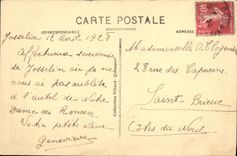 CARTE POSTALE
CORRESPONDANCE
ADRESSE
Josselin 12 Avril 1928
Affectueux souvenir
de Josselin où je ne
vous ai pas oubliée
à l'autel de Notre
Dame du Roncier
Votre petite élève
Geneviève
Mademoiselle O.
2 8 rue des Capucins
Saint-Brieuc
Côtes du Nord